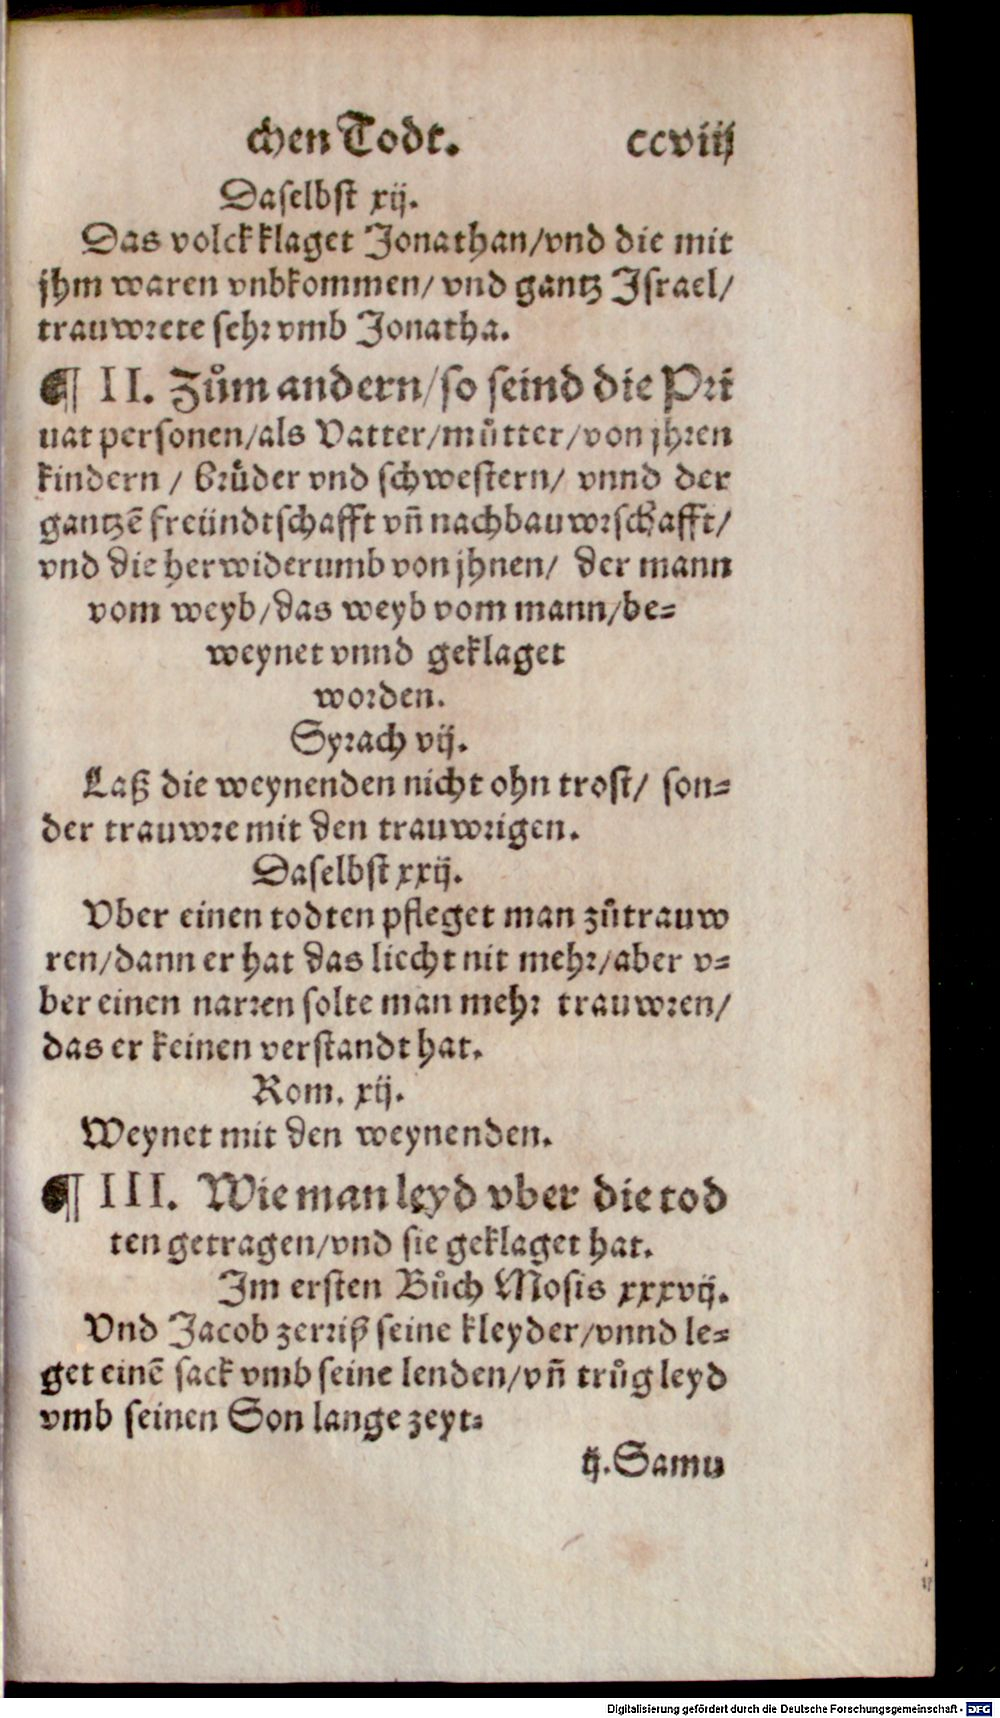 chen Todt. ccviij
Daselbst xij.
Das volck klaget Jonathan/vnd die mit
jhm waren vnbkommen/ vnd gantz Israel/
trauwrete sehr vmb Jonatha.
¶ II. Zům andern/so seind die Pri
uat personen/als Vatter/můtter/von jhren
kindern / brůder vnd schwestern/ vnnd der
gantzē freündtschafft vñ nachbauwrschafft/
vnd die herwiderumb von jhnen/ der mann
vom weyb/das weyb vom mann/be=
weynet vnnd geklaget
worden.
Syrach vij.
Laß die weynenden nicht ohn trost/ son=
der trauwre mit den trauwrigen.
Daselbst xxij.
Vber einen todten pfleget man zůtrauw
ren/dann er hat das liecht nit mehr/aber v=
ber einen narren solte man mehr trauwren/
das er keinen verstandt hat.
Rom. xij.
Weynet mit den weynenden.
¶ III. Wie man leyd vber die tod
ten getragen/vnd sie geklaget hat.
Im ersten Bůch Mosis xxxvij.
Vnd Jacob zerriß seine kleyder/vnnd le=
get einē sack vmb seine lenden/vñ trůg leyd
vmb seinen Son lange zeyt.
ij.Samu
Digitalisierung gefördert durch die Deutsche Forschungsgemeinschaft - DFG